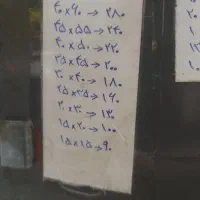 ۴۰×۶۰ → ۲۸۰
۴۵×۵۵ → ۲۴۰
۴۰×۵۰ → ۲۲۰
۳۵×۴۵ → ۲۰۰
۳۰×۴۰ → ۱۸۰
۲۵×۳۵ → ۱۶۰
۲۰×۳۰ → ۱۳۰
۱۵×۲۰ → ۱۰۰
۱۵×۱۵ → ۹۰